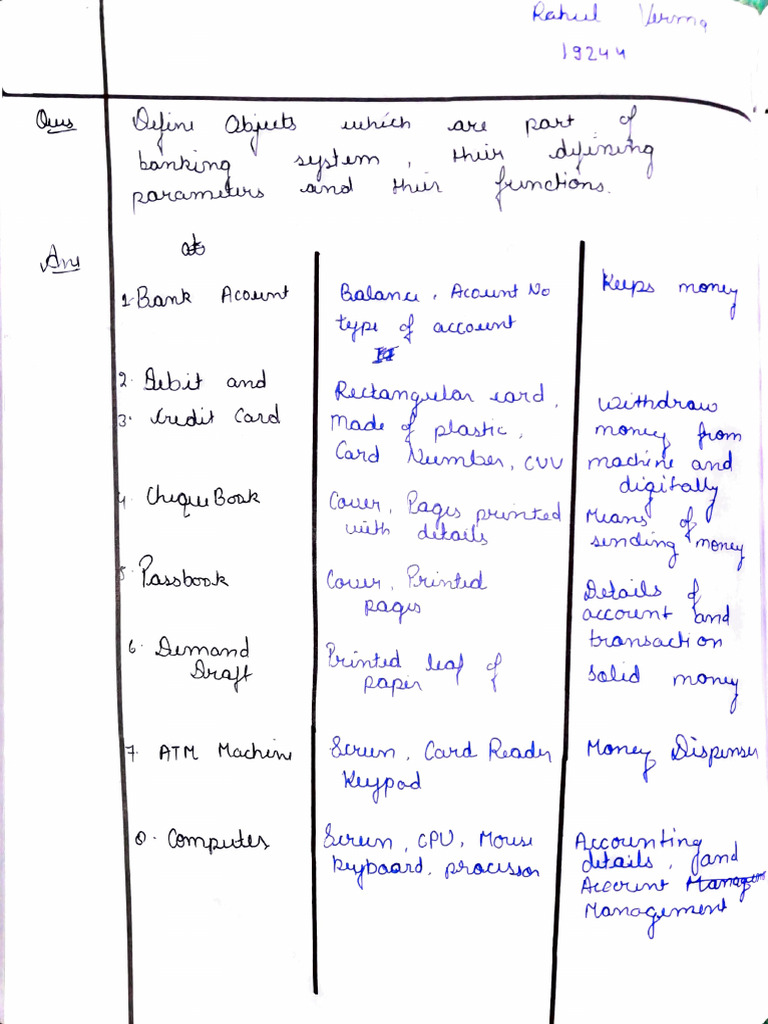 Rahul Verma
19244
Ques Define Objects which are part of
banking system, their defining
parameters and their functions.
Ans
1. Bank Acount
Balance, Acount No
type of account
Keeps money
2. Debit and
3. Credit Card
Rectangular card,
Made of plastic,
Card Number, CVV
Withdraw
money from
machine and
digitally
4. Cheque Book
Cover, Pages printed
with details
Means of
sending money
5. Passbook
Cover, Printed
pages
Details of
account and
transaction
6. Demand
Draft
Printed leaf of
paper
Solid money
7. ATM Machine
Screen, Card Reader
Keypad
Money Dispenser
8. Computer
Screen, CPU, Mouse
keyboard, processor
Accounting
details, and
Account
Management